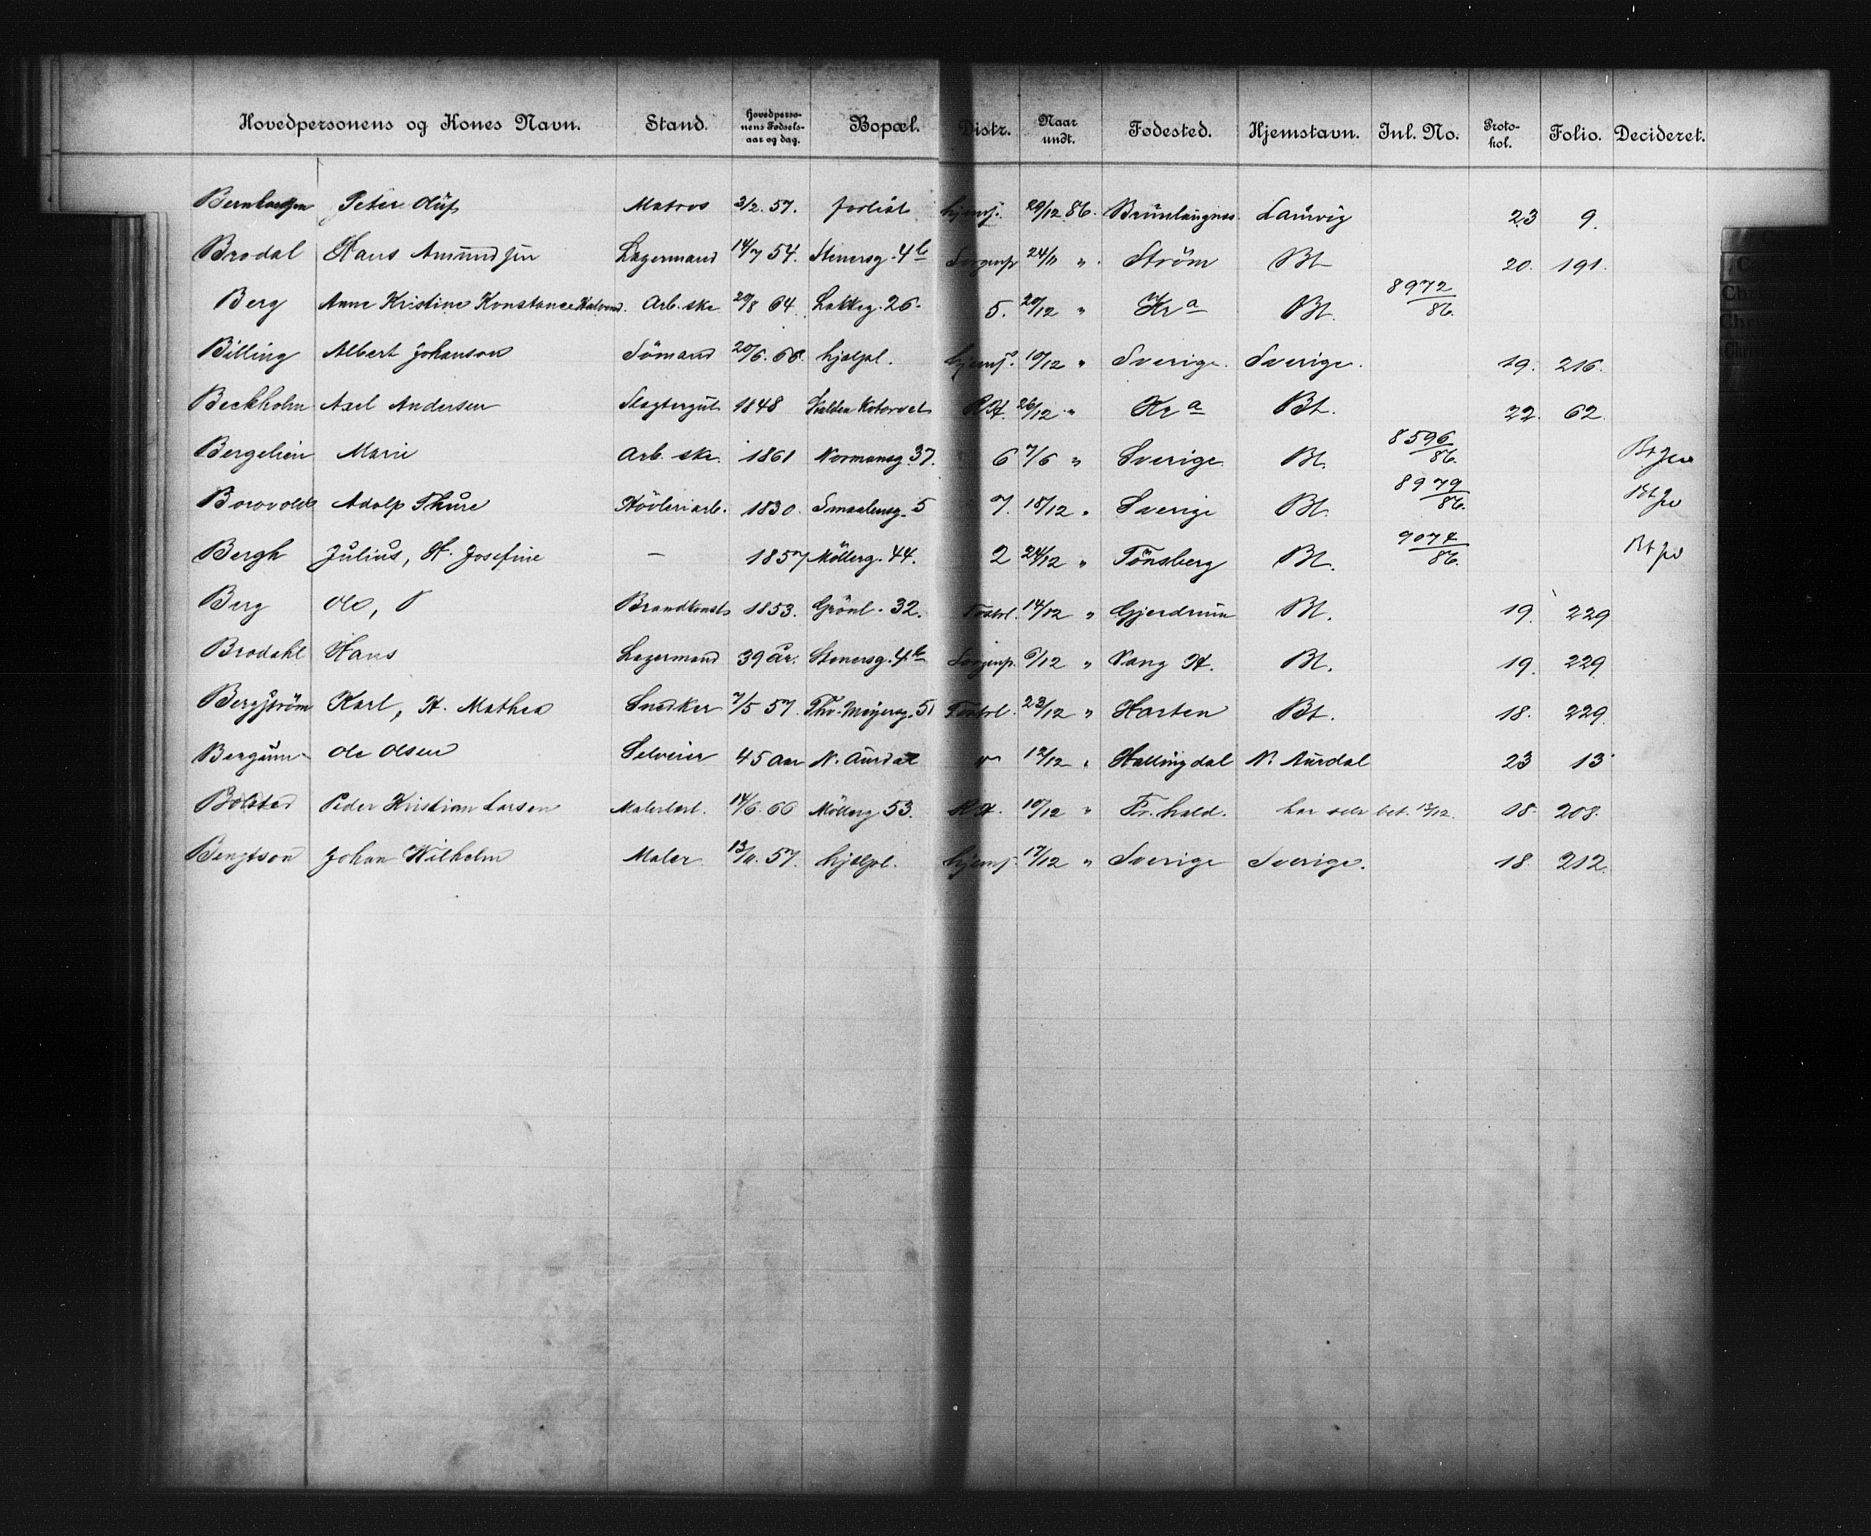 Hovedpersonens og Kones Navn. Stand. Hovedperso-nens Fødsels-aar og dag. Bopæl. Distr. Naar undt. Fødested. Hjemstavn. Inl. No. Proto-kol. Folio. Decideret.
Peter Oluf Matros 3/2. 57. forlist hjemf. 29/12 86. Laurvig 23 9.
Brodal Hans Amundsen Lagermand 14/7 54. Stenersg. 4b 24/11 " Strøm Bt. 20. 191.
Berg Anne Kristine Konstance Arb. ske 29/8 64. Lakkeg. 26. 5. 20/12 " Kra Bt. 8972/86.
Billing Albert Johanson Sømand 20/6. 66. hjælpl. hjemf. 10/12 " Sverige. Sverige. 19. 216.
Beckholm Axel Andersen Slagtergut 1848 R.H. 26/12 " Kra Bt. 22. 62.
Bergelien Marie Arb. ske. 1861 Normansg. 37. 6 7/6 " Sverige Bt. 8596/86.
Adolp Thure Høvleriarb. 1830. Smaalensg. 5 7. 18/12 " Sverige Bt. 8979/86.
Bergh Julius, H. Josefine — 1857 Møllerg. 44. 2 24/12 " Tønsberg Bt. 9074/86.
Berg Ole, P 1853. Grønl. 32. 14/12 " Gjerdrum Bt. 19. 229
Brodahl Hans Lagermand 39 år. Stenersg. 4b 6/12 " Vang H. Bt. 19. 229.
Bergstrøm Karl, H. Mathea Snedker 7/5 57. Thv. Meyersg. 51 23/12 " Horten Bt. 18. 229.
Ole Olsen Selveier 45 aar N. Aurdal " 12/12 " Hallingdal N. Aurdal 23 13
Bolstad Peder Kristian Larsen Malerlærl. 14/6. 66 Møllerg 53. R.H. 10/12 " Fr. hald. har selv bet. 13/12. 18. 208.
Bengtson Johan Wilhelm Maler 13/11. 57. hjælpl. hjemf. 17/12 " Sverige Sverige. 18. 212.